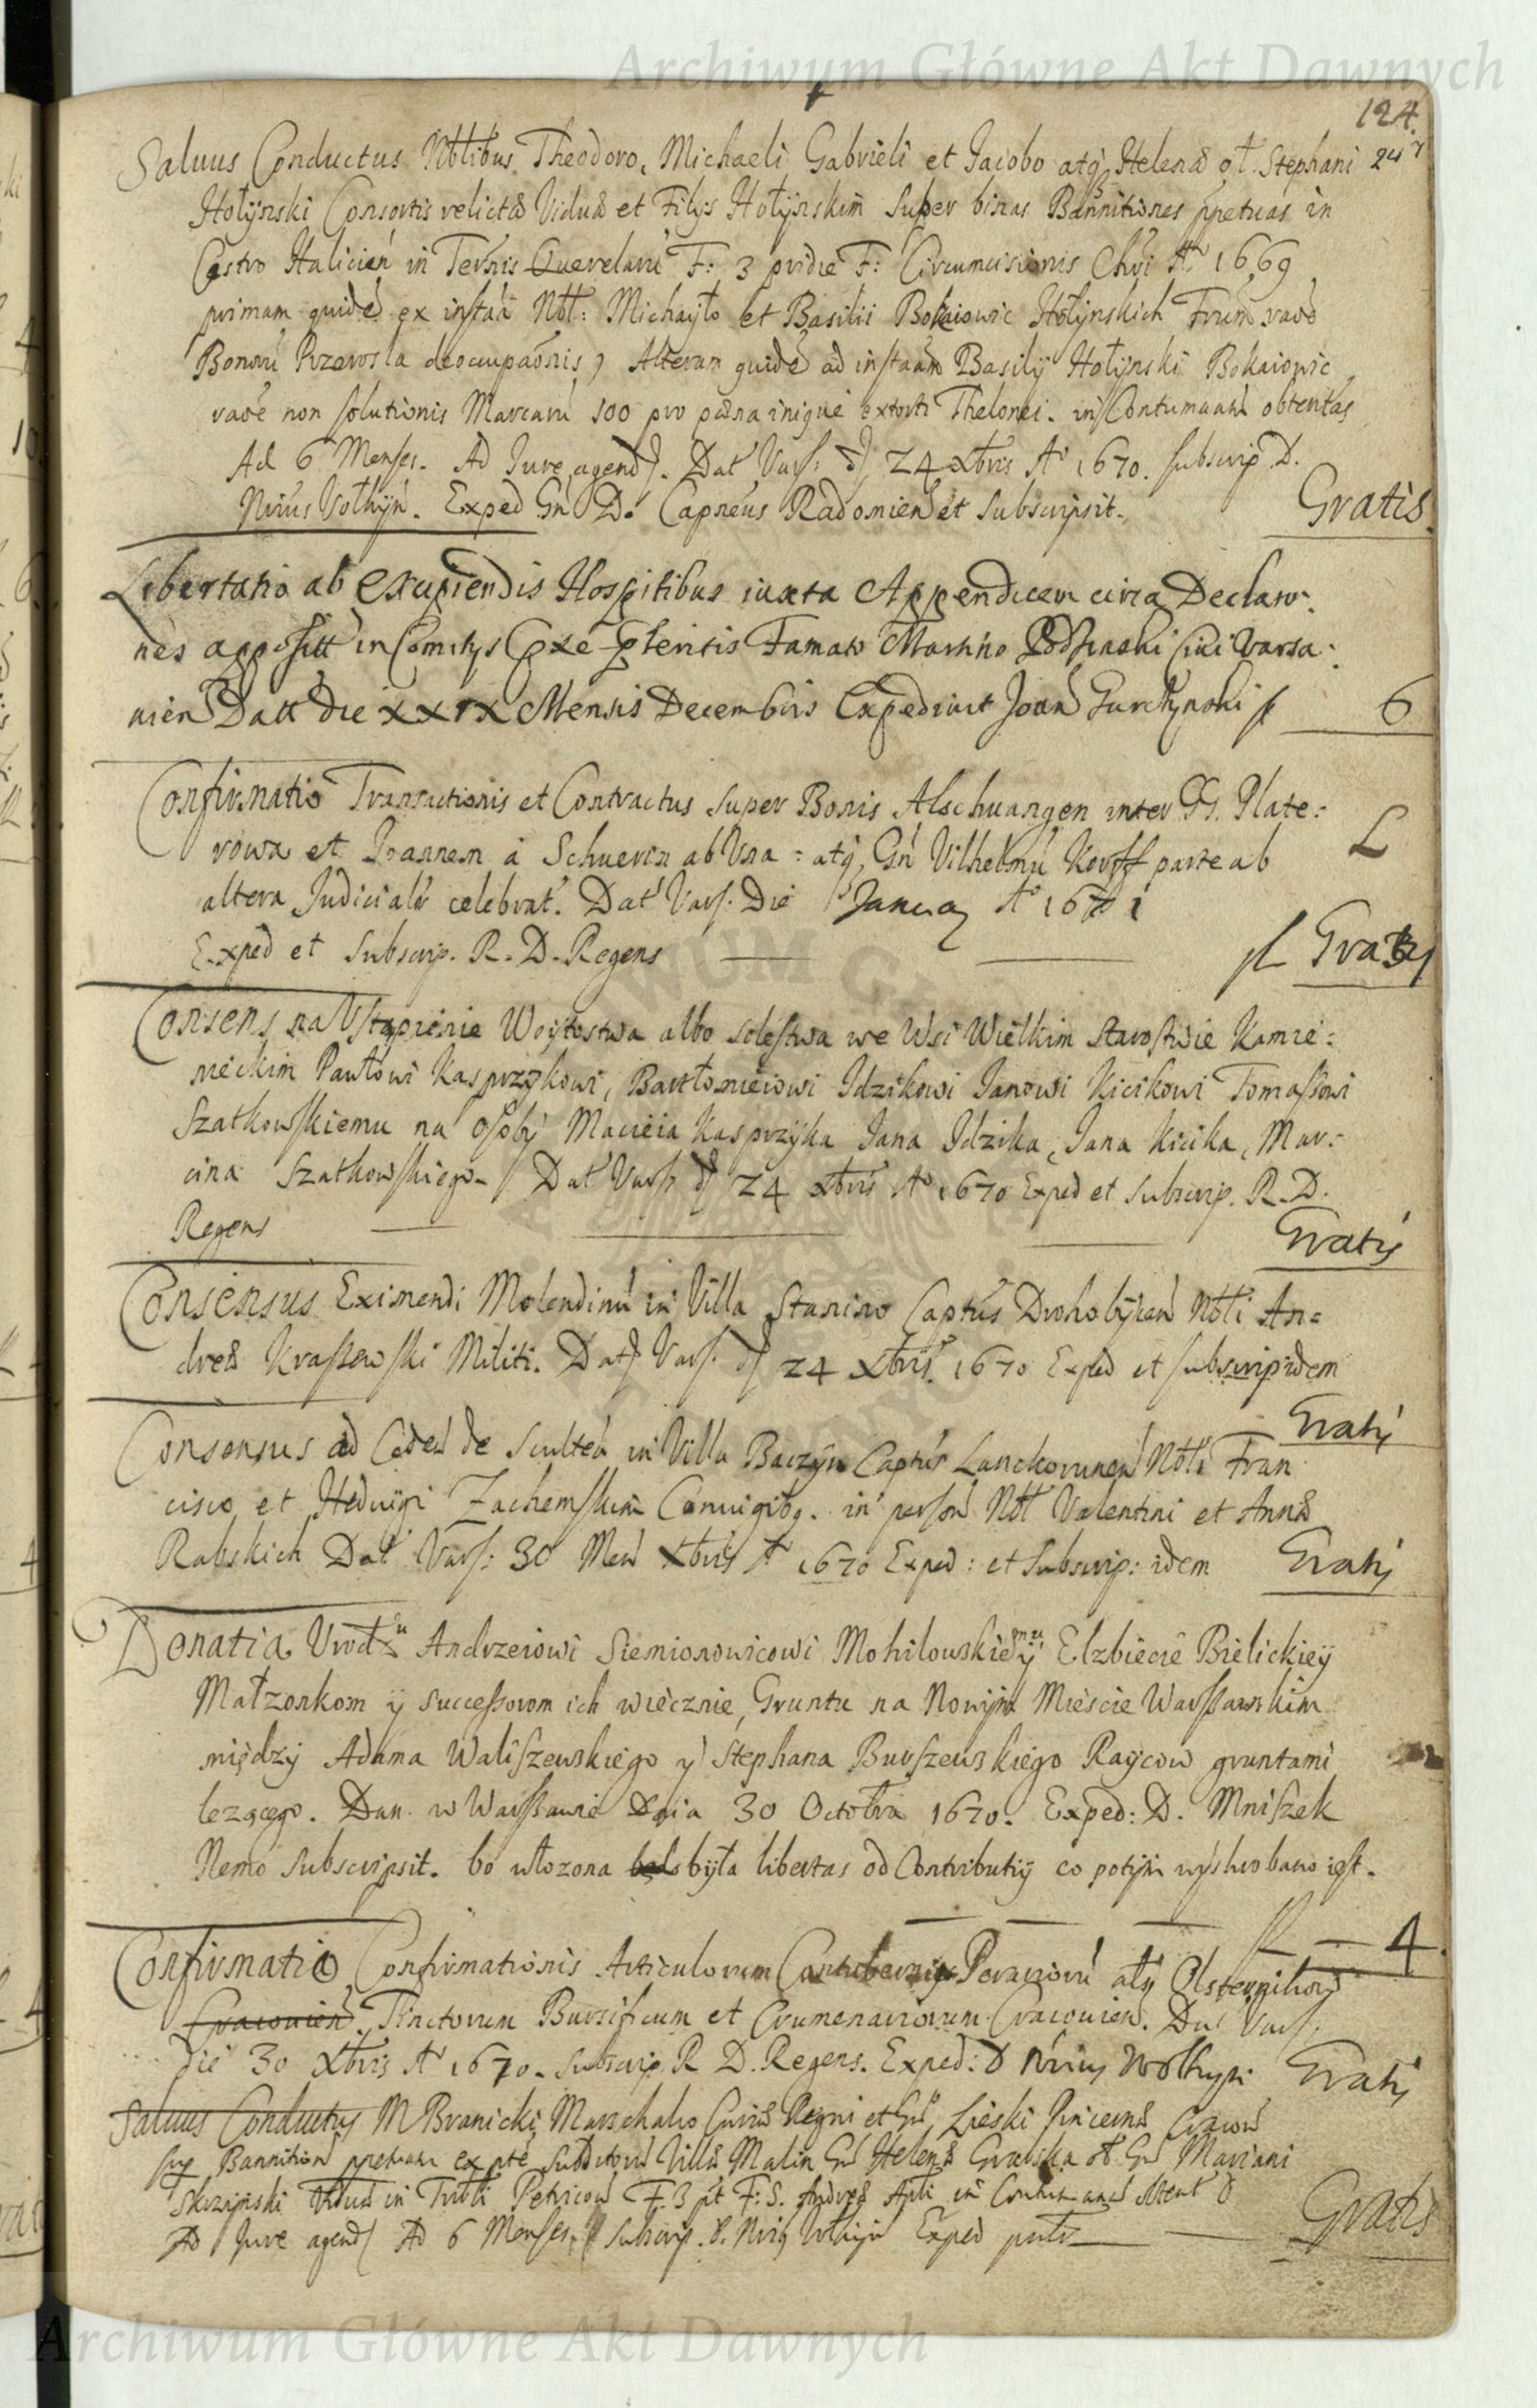 Archiwum Główne Akt Dawnych
124.
Saluus Conductus Nobtibus Theodoro, Michaeli Gabrieli et Jacobo atq Helenæ ot. Stephani 24 r
Hołynski Consortis relictæ Viduæ et Filys Hołynskim Super binas Bannitiones ppetuas in
Castro Halicien in Termis Querelarū F: 3 pridie F: Circumcisionis Chri A° 1669
primam quidē ex instāa Nbl: Michayło et Basilii Bokaiowic Hołynskich Frūm raōe
Bonorū Przerosla deoccupaōnis, Alteram quidē ad instāam Basily Hołynski Bokaiowic
raōe non solutionis Marcarū 100 pro pœna inique extorti Thelonei. in Contumaciā obtentas
Ad 6 Menses. Ad Jure agend. Dat Vars: d 24 Xbris A° 1670. subscrip D.
Nrius Volhyn. Exped Gn D. Capneus Radomien et Subscripsit. Gratis.
Libertatio ab Excipiendis Hospitibus iuxta Appendicem circa Declaro:
nēs apposit in Comitys Cxē Pteritis Famato Martino Cini Varsa:
uien Datt die XXIX Mensis Decembris Expediuit Joan Gurczynski 6
Confirmatio Transactionis et Contractus Super Bonis Alschuangen inter GG. Plate:
rowa et Joannem a Schuerin ab Vna = atq Gn Vilhelmū Korff parte ab L
altera Judicialr celebrat. Dat Vars. Die Januaq A° 1671
Exped et Subscrip. R. D. Regens Gratis
Consens na Vstąpienie Woytostwa albo solestwa we Wsi Wielkim Starostwie Kamie:
nieckim Pawłowi Kasprzykowi, Bartłomieiowi Idzikowi Janowi Kicikowi Tomassowi
Szatkowskiemu na osoby Macieia Kasprzyka Jana Idzika, Jana Kicika, Mar:
cina Szatkowskiego. Dat Vars d 24 Xbris A° 1670 Exped et Subscrip. R. D.
Regens Gratis
Consensus Eximendi Molendinū in Villa Stanino Captus Drohobycen Nobli An=
dreæ Krassewski Militi. Dat Vars. d 24 Xbris. 1670 Exped et subscrip idem
Gratis
Consensus ad Ceden de Scultea in Villa Baczyn Captus Lanckorunen Nobli Fran
cisco et Heduigi Zachemskim Coniugibq. in person Nobl Valentini et Annæ
Rabskich Dat Vars: 30 Men Xbris A° 1670 Exped: et Subscrip: idem Gratis
Donatia Vrodz u Andrzeiowi Siemionowicowi Mohilowskiemu y Elzbiecie Bielickiey
Małzonkom y successorom ich wiecznie, Gruntu na Nowym Miescie Warszawskim
między Adama Waliszewskiego y Stephana Burszewskiego Raycow gruntami
lezącego. Dan. w Warszawie Dnia 30 Octobra 1670. Exped: D. Mniszek
Nemo subscripsit. bo włozona była libertas od Contributiy co potym wyskrobano iest.
4.
Confirmatio Confirmationis Articulorum Contubernij Perariorū atq
Cracouien. Tinctorum Bursificum et Crumenariorum Cracouien. Dat Vars.
die 30 Xbris A° 1670. Subscrip. R D. Regens. Exped: D Nrius Wolhyn. Gratis
Saluus Conductus M Branicki Marschalco Curiæ Regni et Gn Lieski Pincernæ Cracou
sup Bannition ppetuam ex pte Subditorū Villæ Malin Gn Helenæ Grabska ot Gn Mariani
Skrzynski Viduæ in Trbli Petricou F. 3 pt F: S. Andreæ Apli in Contumaciā obtent
Ad Jure agend Ad 6 Menses. Subscrip. D. Nrius Wolhyn Exped Gratis
Archiwum Główne Akt Dawnych